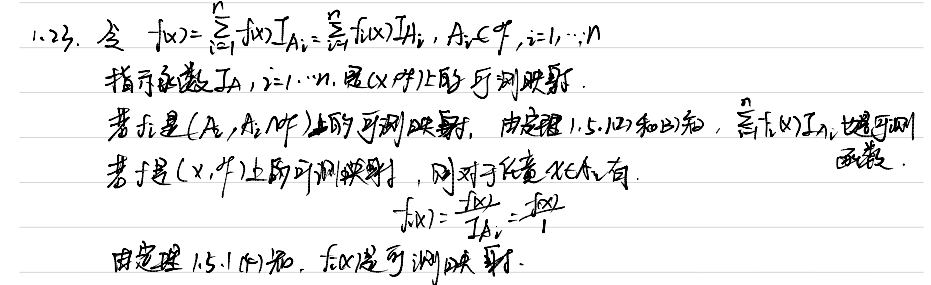 1.23. 令 f(x)=∑_{i=1}^{n} f(x)I_{A_i}=∑_{i=1}^{n} f_i(x)I_{A_i}, A_i∈𝒜, i=1,…,n
指示函数 I_{A_i}, i=1…n. 是(X,𝒜)上的可测映射.
若f_i是(A_i, A_i∩𝒜)上的可测映射, 由定理1.5.1(2)和(3)知, ∑_{i=1}^{n} f_i(x)I_{A_i}也是可测
函数.
若f是(X,𝒜)上的可测映射, 则对于任意x∈A_i有.
f_i(x)=f(x)/I_{A_i}=f(x)/1
由定理1.5.1(4)知. f_i(x)是可测映射.